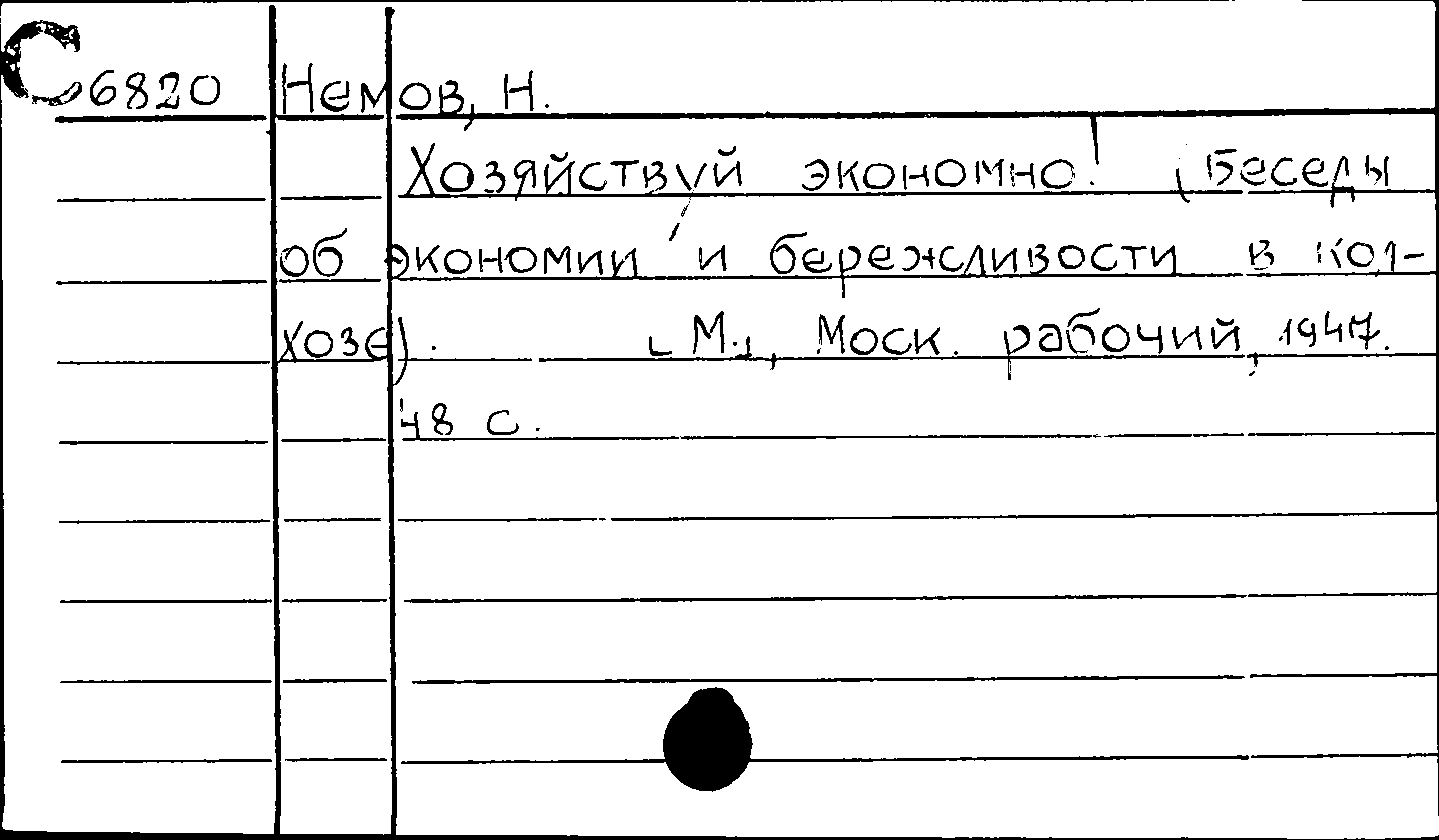 С6820 Немов, Н.
Хозяйствуй экономно! (Беседы
об экономии и бережливости в кол-
хозе). [М.], Моск. рабочий, 1947.
48 с.